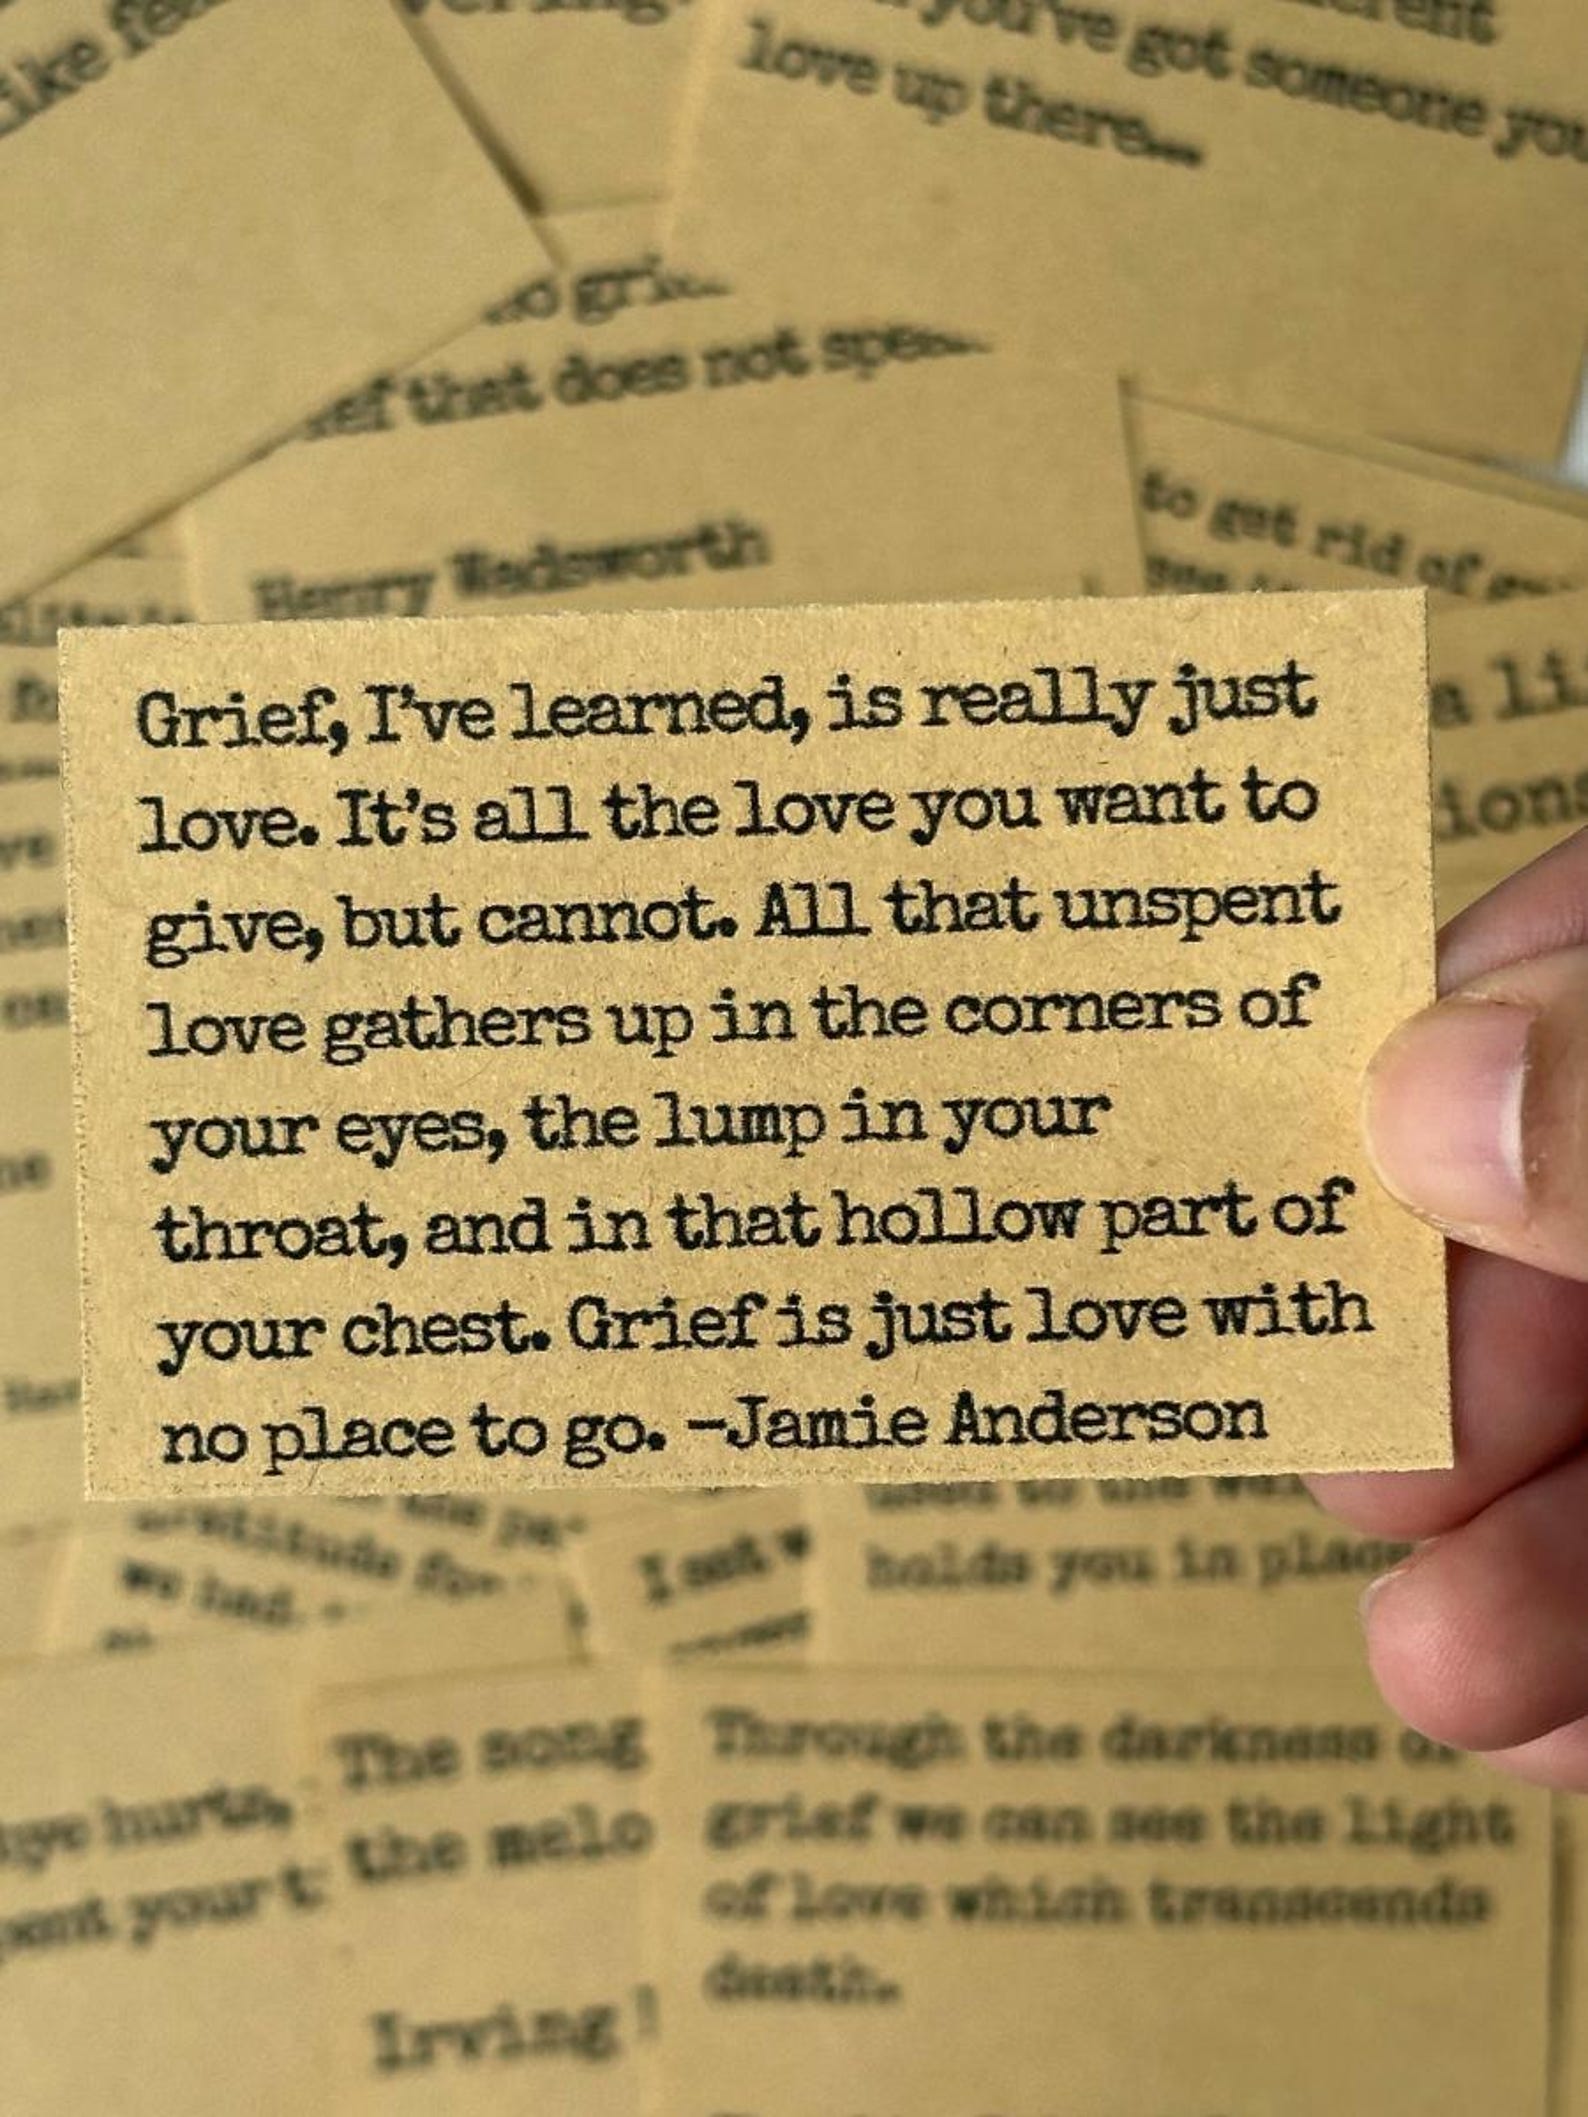 ike
love up there...
you've got someone you
that does not
Henry Wadsworth
to get rid of
a li
ions
Grief, I've learned, is really just
love. It's all the love you want to
give, but cannot. All that unspent
love gathers up in the corners of
your eyes, the lump in your
throat, and in that hollow part of
your chest. Grief is just love with
no place to go. -Jamie Anderson
we had.
holds you in place
The song
the melo
Irving
hurts,
your t
Through the darkness of
grief we can see the light
of love which transcends
death.